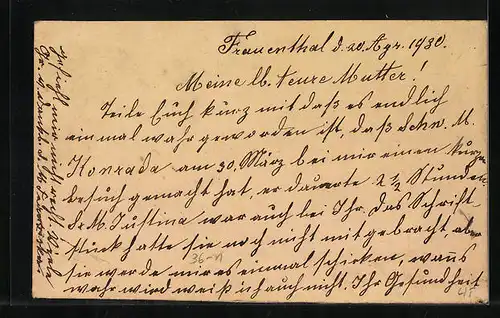 Frauenthal d. 20. Apr. 1930.
Meine lb. teure Mutter!
Teile Euch kurz mit daß es endlich
einmal wahr geworden ist, daß Schw. M.
Konrada am 30. März bei mir einen kurzen
besuch gemacht hat, er dauerte 2 1/2 Stunden.
Sr. M. Justina war auch bei Ihr. Das Schrift-
stück hatte sie noch nicht mit gebracht, aber
sie werde mir es einmal schicken, wann's
wahr wird weiß ich auch nicht. Ihr Gesundheit
36-n